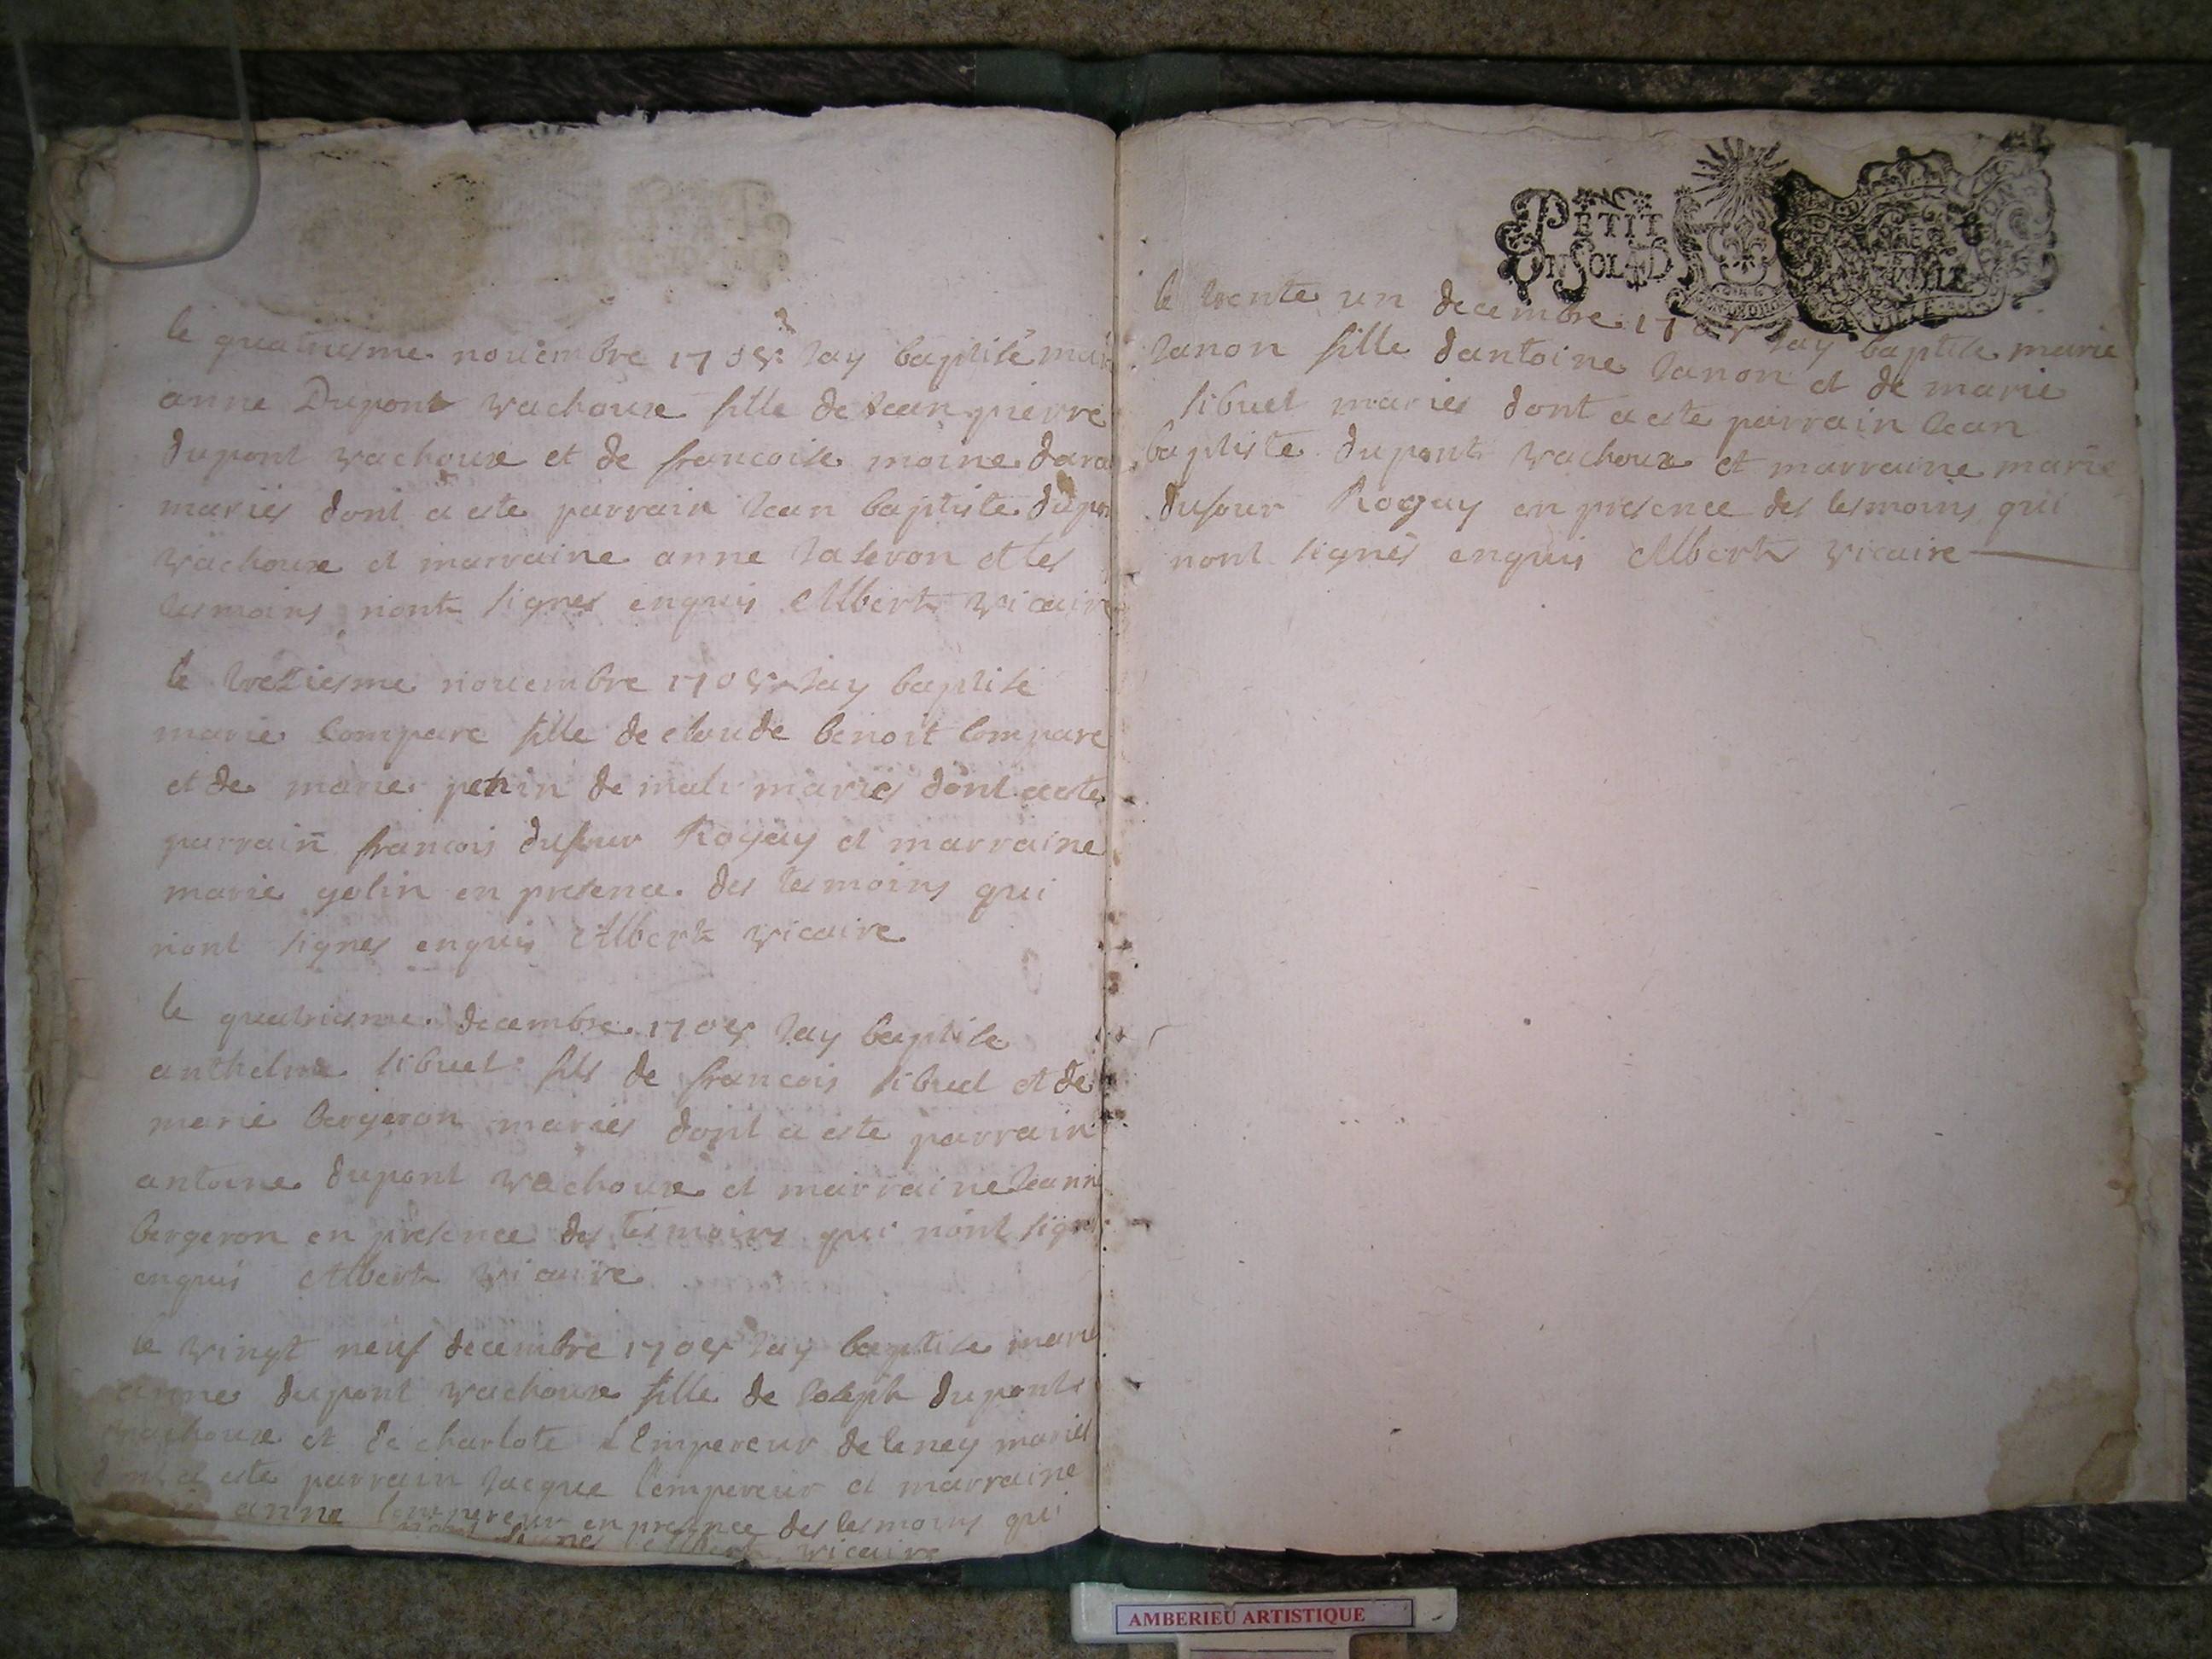 le quatriesme nouembre 1705 Jay baptisé mar
anne Dupont vachoux fille de Jean pierre
dupont vachoux et de francoise moine dara
mariés dont a este parrain Jean baptiste dupon
vachoux et marraine anne et les
tesmoins nont signes enquis Albert vicaire
le treziesme nouembre 1705 Jay baptisé
marie Compare fille de cloude benoit Compare
et de marie de mariés dont a este
parrain francois dufour Rogay et marraine
marie golin en presence des tesmoins qui
nont signes enquis Albert vicaire
le quatriesme decembre 1705 Jay baptise
anthelme sibuet fils de francois sibuet et de
marie bergeron mariés dont a este parrain
antoine dupont vachoux et marraine Jeanne
bergeron en presence des tesmoins qui nont signe
enquis Albert vicaire
le vingt neuf decembre 1705 Jay baptise marie
anne dupont vachoux fille de Joseph dupont
vachoux et de charlote L'Empereur de mariés
dont a este parrain Jacque l'empereur et marraine
anne l'empereur en presence des tesmoins qui
nont signes Albert vicaire
PETIT
UN SOL 4 D
le trente un decembre 1705 Jay baptise marie
Janon fille dantoine Janon et de marie
sibuet mariés dont a este parrain Jean
baptiste dupont vachoux et marraine marie
dufour Rogay en presence des tesmoins qui
nont signés enquis Albert vicaire
AMBERIEU ARTISTIQUE